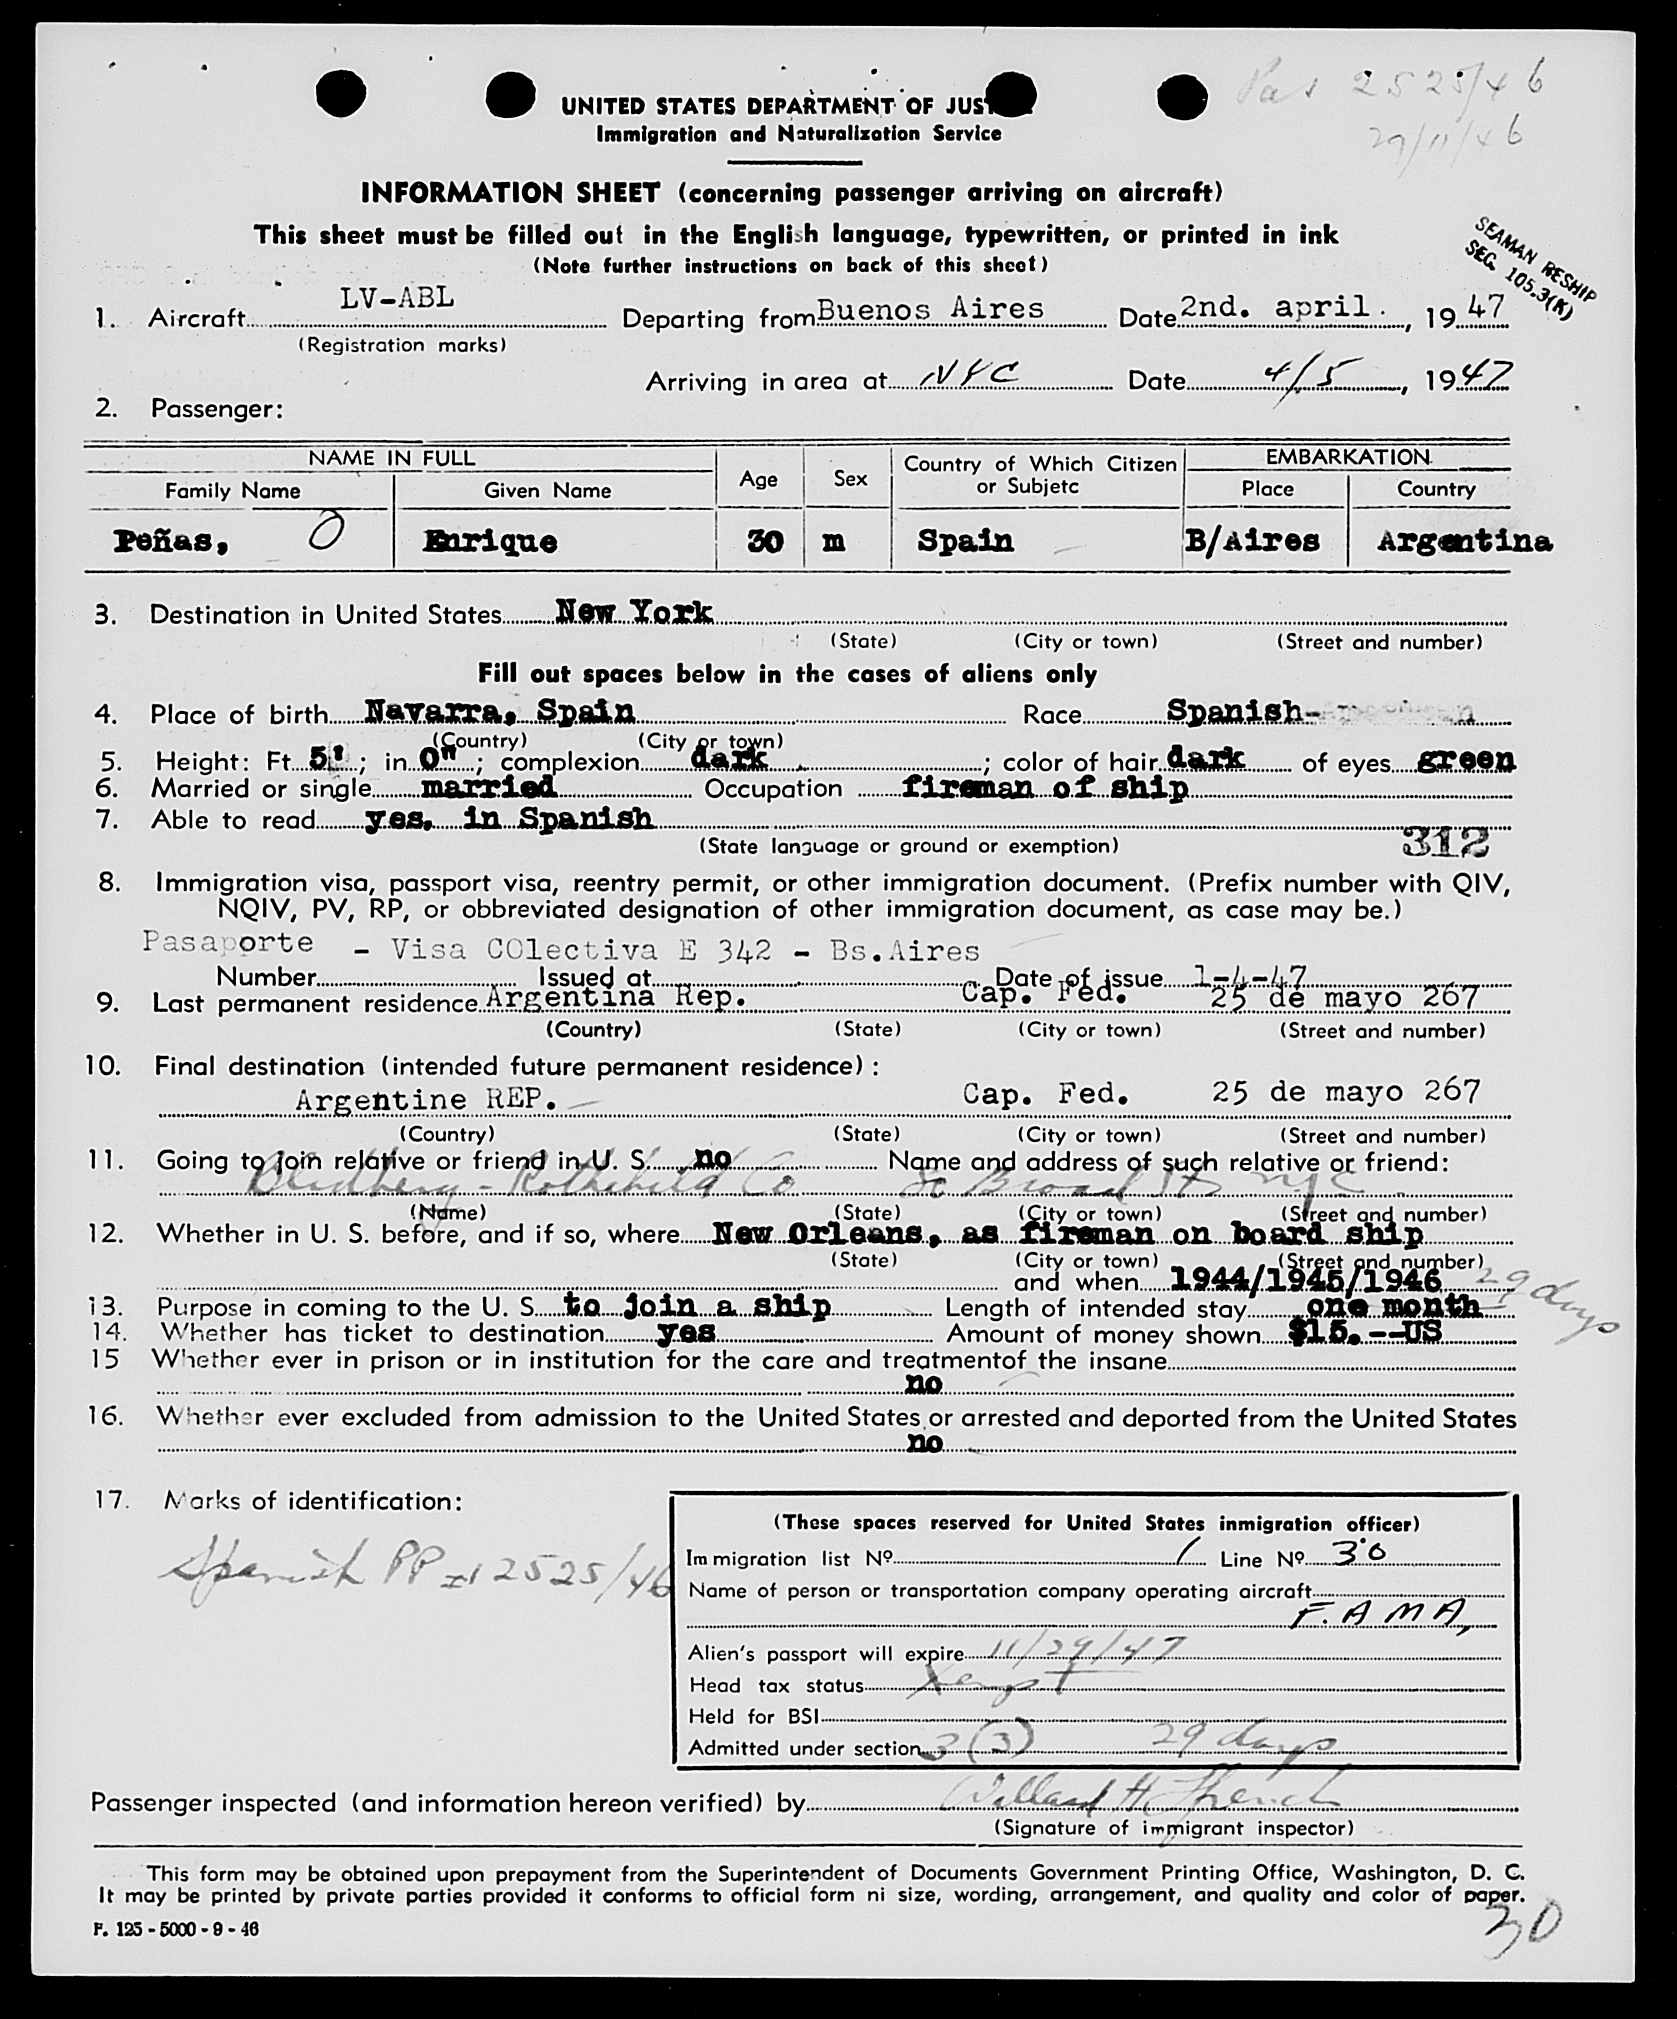 Pas 2525/46
29/11/46
UNITED STATES DEPARTMENT OF JUS
Immigration and Naturalization Service
INFORMATION SHEET (concerning passenger arriving on aircraft)
This sheet must be filled out in the English language, typewritten, or printed in ink
(Note further instructions on back of this sheet)
SEAMAN RESHIP
SEC. 105.3(K)
1. Aircraft LV-ABL Departing from Buenos Aires Date 2nd. april. , 19 47
(Registration marks)
Arriving in area at NYC Date 4/5 , 19 47
2. Passenger:
NAME IN FULL Age Sex Country of Which Citizen or Subjetc EMBARKATION
Family Name Given Name Place Country
Peñas, O Enrique 30 m Spain B/Aires Argentina
3. Destination in United States New York
(State) (City or town) (Street and number)
Fill out spaces below in the cases of aliens only
4. Place of birth Navarra, Spain Race Spanish-
(Country) (City or town)
5. Height: Ft. 5' ; in. 0" ; complexion dark ; color of hair dark of eyes green
6. Married or single married Occupation fireman of ship
7. Able to read yes, in Spanish
(State language or ground or exemption) 312
8. Immigration visa, passport visa, reentry permit, or other immigration document. (Prefix number with QIV,
NQIV, PV, RP, or obbreviated designation of other immigration document, as case may be.)
Pasaporte - Visa COlectiva E 342 - Bs.Aires
Number Issued at Date of issue 1-4-47
9. Last permanent residence Argentina Rep. Cap. Fed. 25 de mayo 267
(Country) (State) (City or town) (Street and number)
10. Final destination (intended future permanent residence) :
Argentine REP. Cap. Fed. 25 de mayo 267
(Country) (State) (City or town) (Street and number)
11. Going to join relative or friend in U. S. no Name and address of such relative or friend:
Rothchild Co 80 Broad St NYC
(Name) (State) (City or town) (Street and number)
12. Whether in U. S. before, and if so, where New Orleans, as fireman on board ship
(State) (City or town) (Street and number)
and when 1944/1945/1946 29 days
13. Purpose in coming to the U. S. to join a ship Length of intended stay one month
14. Whether has ticket to destination yes Amount of money shown $15.--US
15 Whether ever in prison or in institution for the care and treatmentof the insane
no
16. Whether ever excluded from admission to the United States or arrested and deported from the United States
no
17. Marks of identification:
Spanish PP 2525/46
(These spaces reserved for United States inmigration officer)
Immigration list Nº 1 Line Nº 30
Name of person or transportation company operating aircraft
F.A.M.A,
Alien's passport will expire 11/29/47
Head tax status Xempt
Held for BSI
Admitted under section 3(3) 29 days
Passenger inspected (and information hereon verified) by Willard H French
(Signature of immigrant inspector)
This form may be obtained upon prepayment from the Superintendent of Documents Government Printing Office, Washington, D. C.
It may be printed by private parties provided it conforms to official form ni size, wording, arrangement, and quality and color of paper.
F. 125 - 5000 - 9 - 46
30